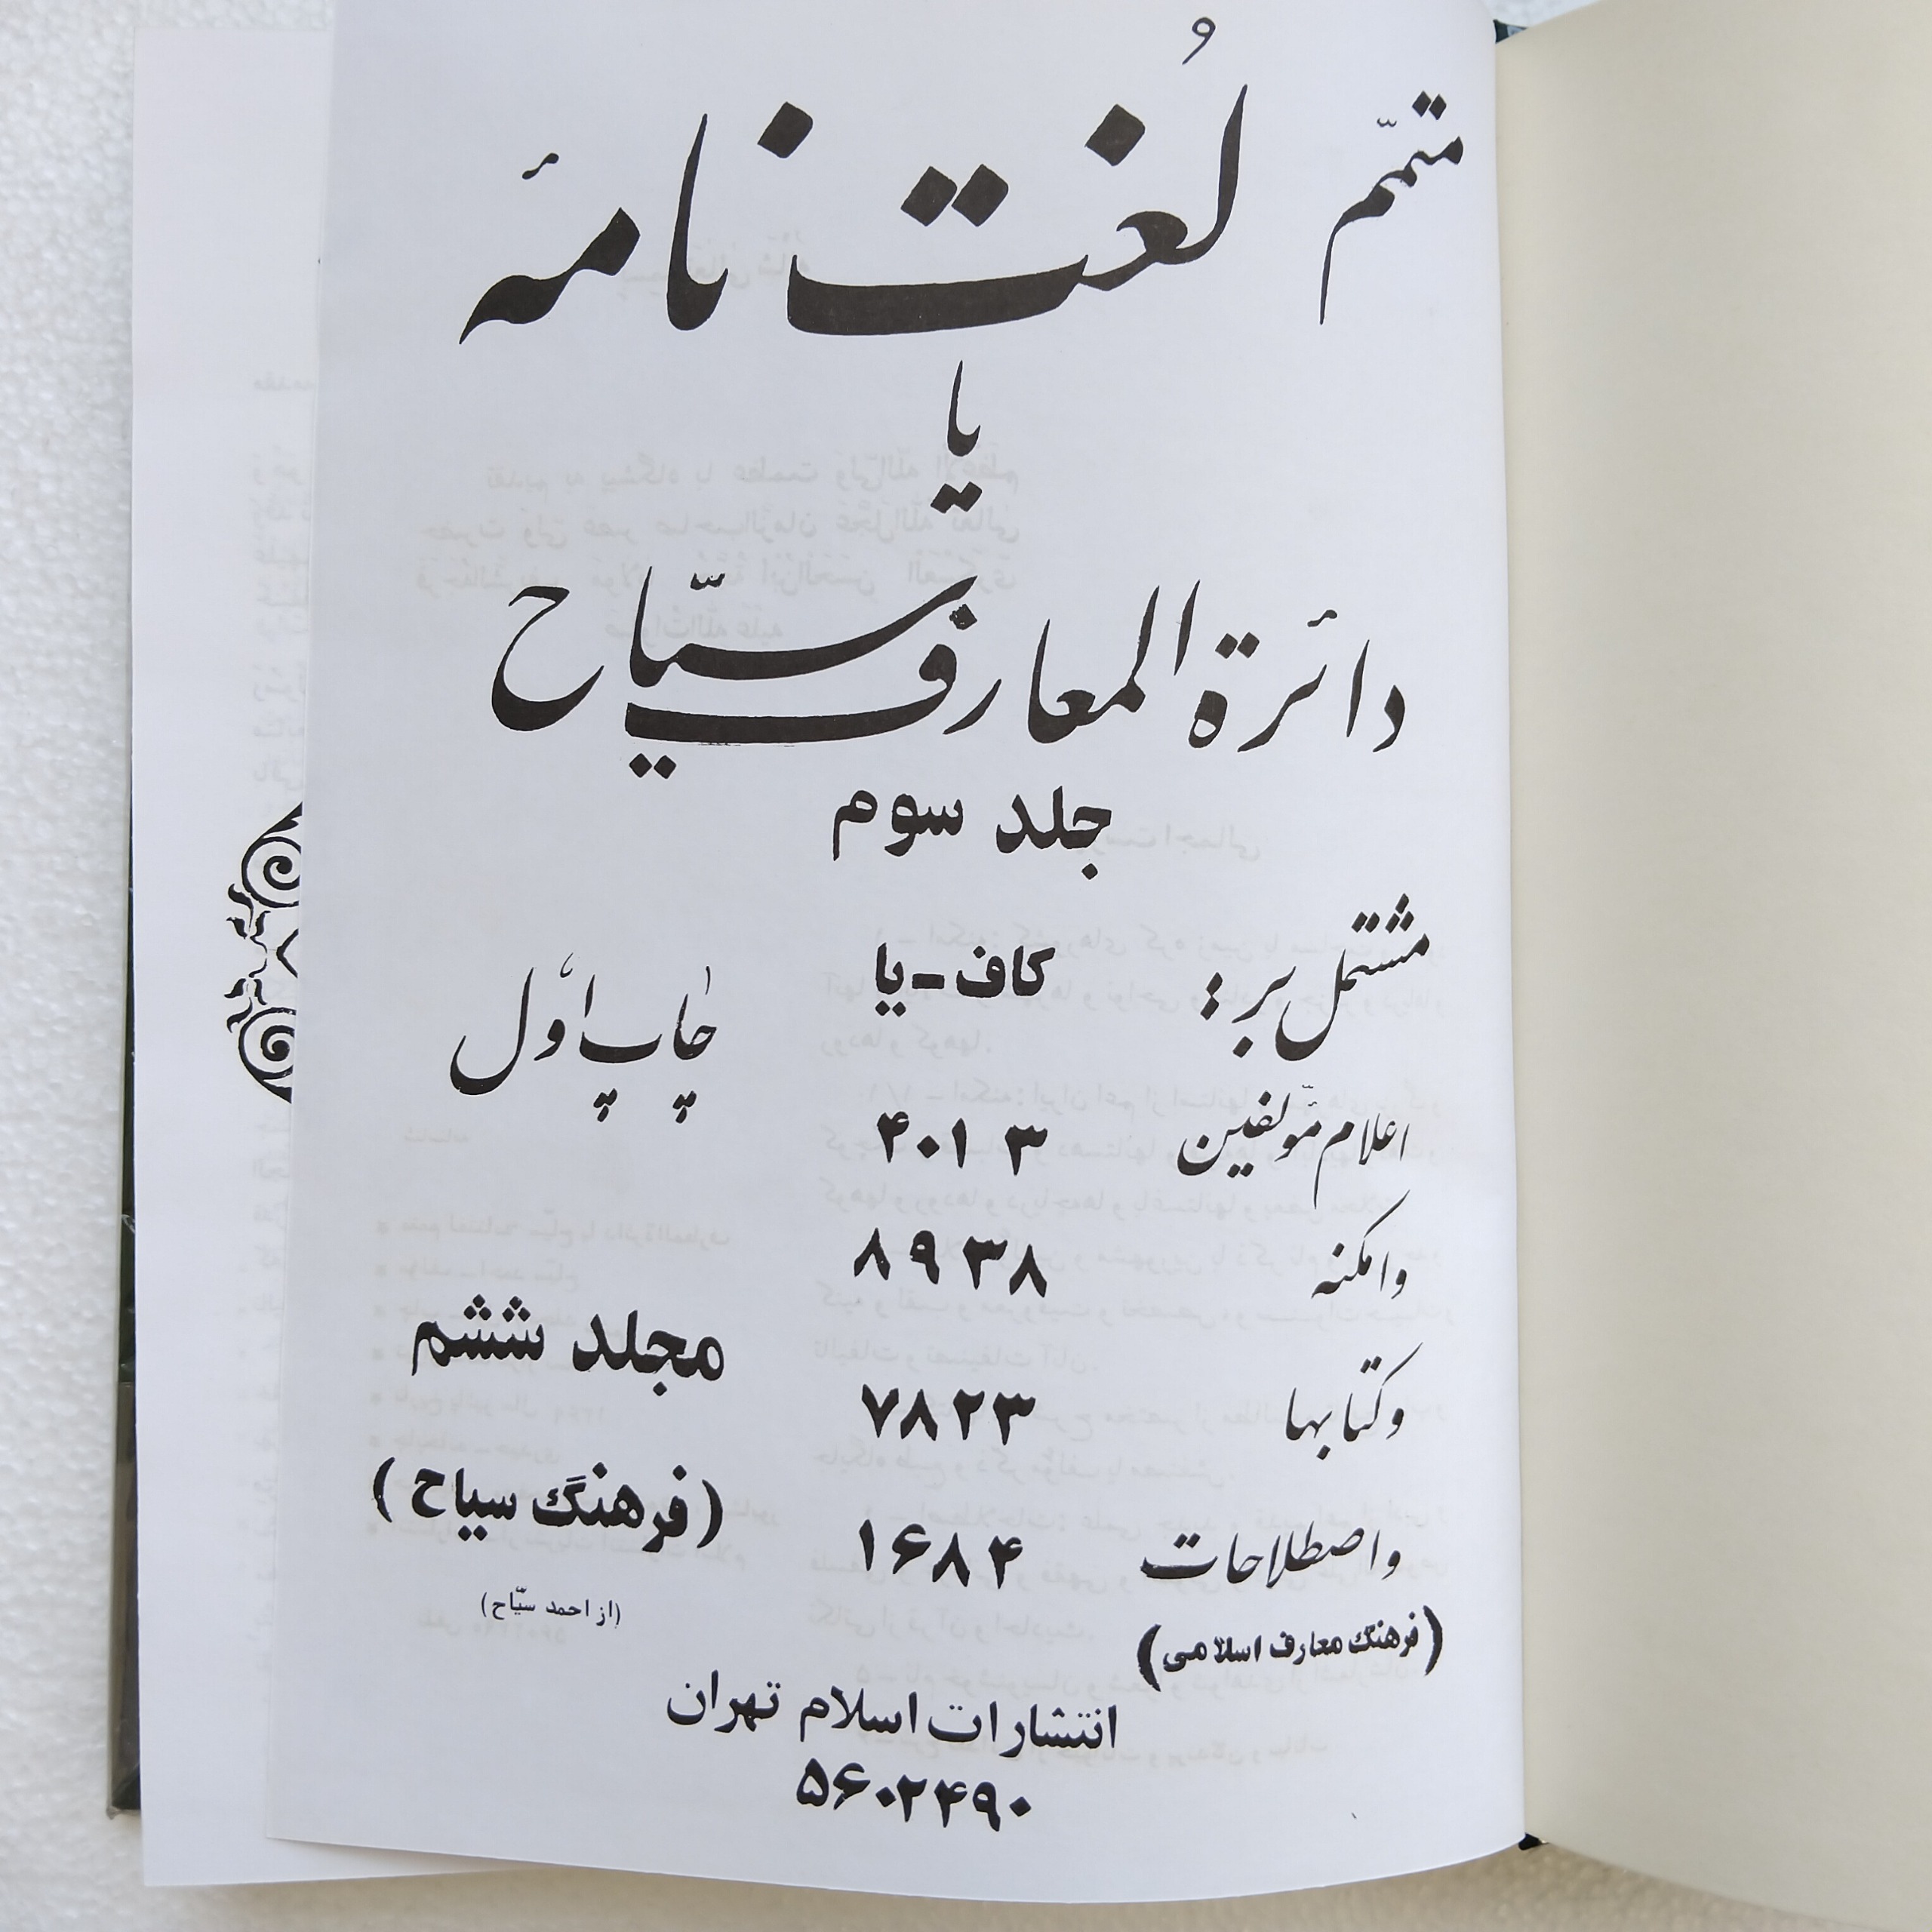 متمّم لُغت نامهٔ
یا
دائرة المعارف سیّاح
جلد سوم
مشتمل بر: کاف-یا
چاپ اوّل
اعلام مؤلفین ۴۰۱۳
وامکنه ۸۹۳۸
مجلد ششم
وکتابها ۷۸۲۳
(فرهنگ سیاح)
واصطلاحات ۱۶۸۴
(از احمد سیّاح)
(فرهنگ معارف اسلامی)
انتشارات اسلام تهران
۵۶۰۲۴۹۰